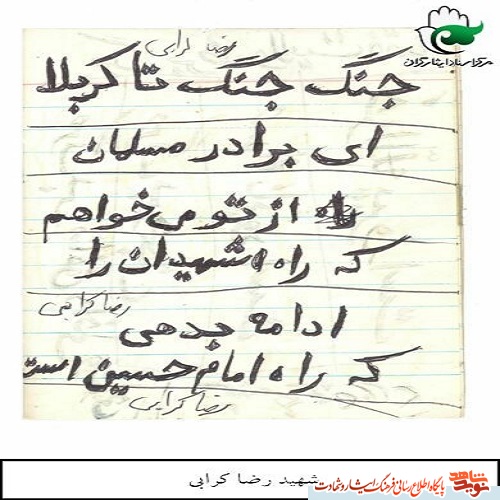 مرکز اسناد ایثارگران
رضا کرابی
جنگ جنگ تا کربلا
ای برادر مسلمان
از تو می خواهم
که راه شهیدان را
رضا کرابی
ادامه بدهی
که راه امام حسین است
رضا کرابی
شهید رضا کرابی
نوید شاهد
پایگاه اطلاع رسانی فرهنگ ایثار و شهادت